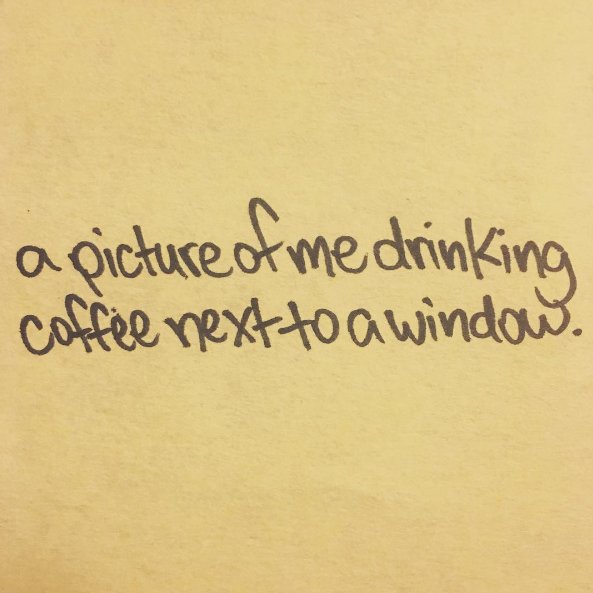 a picture of me drinking
coffee next to a window.